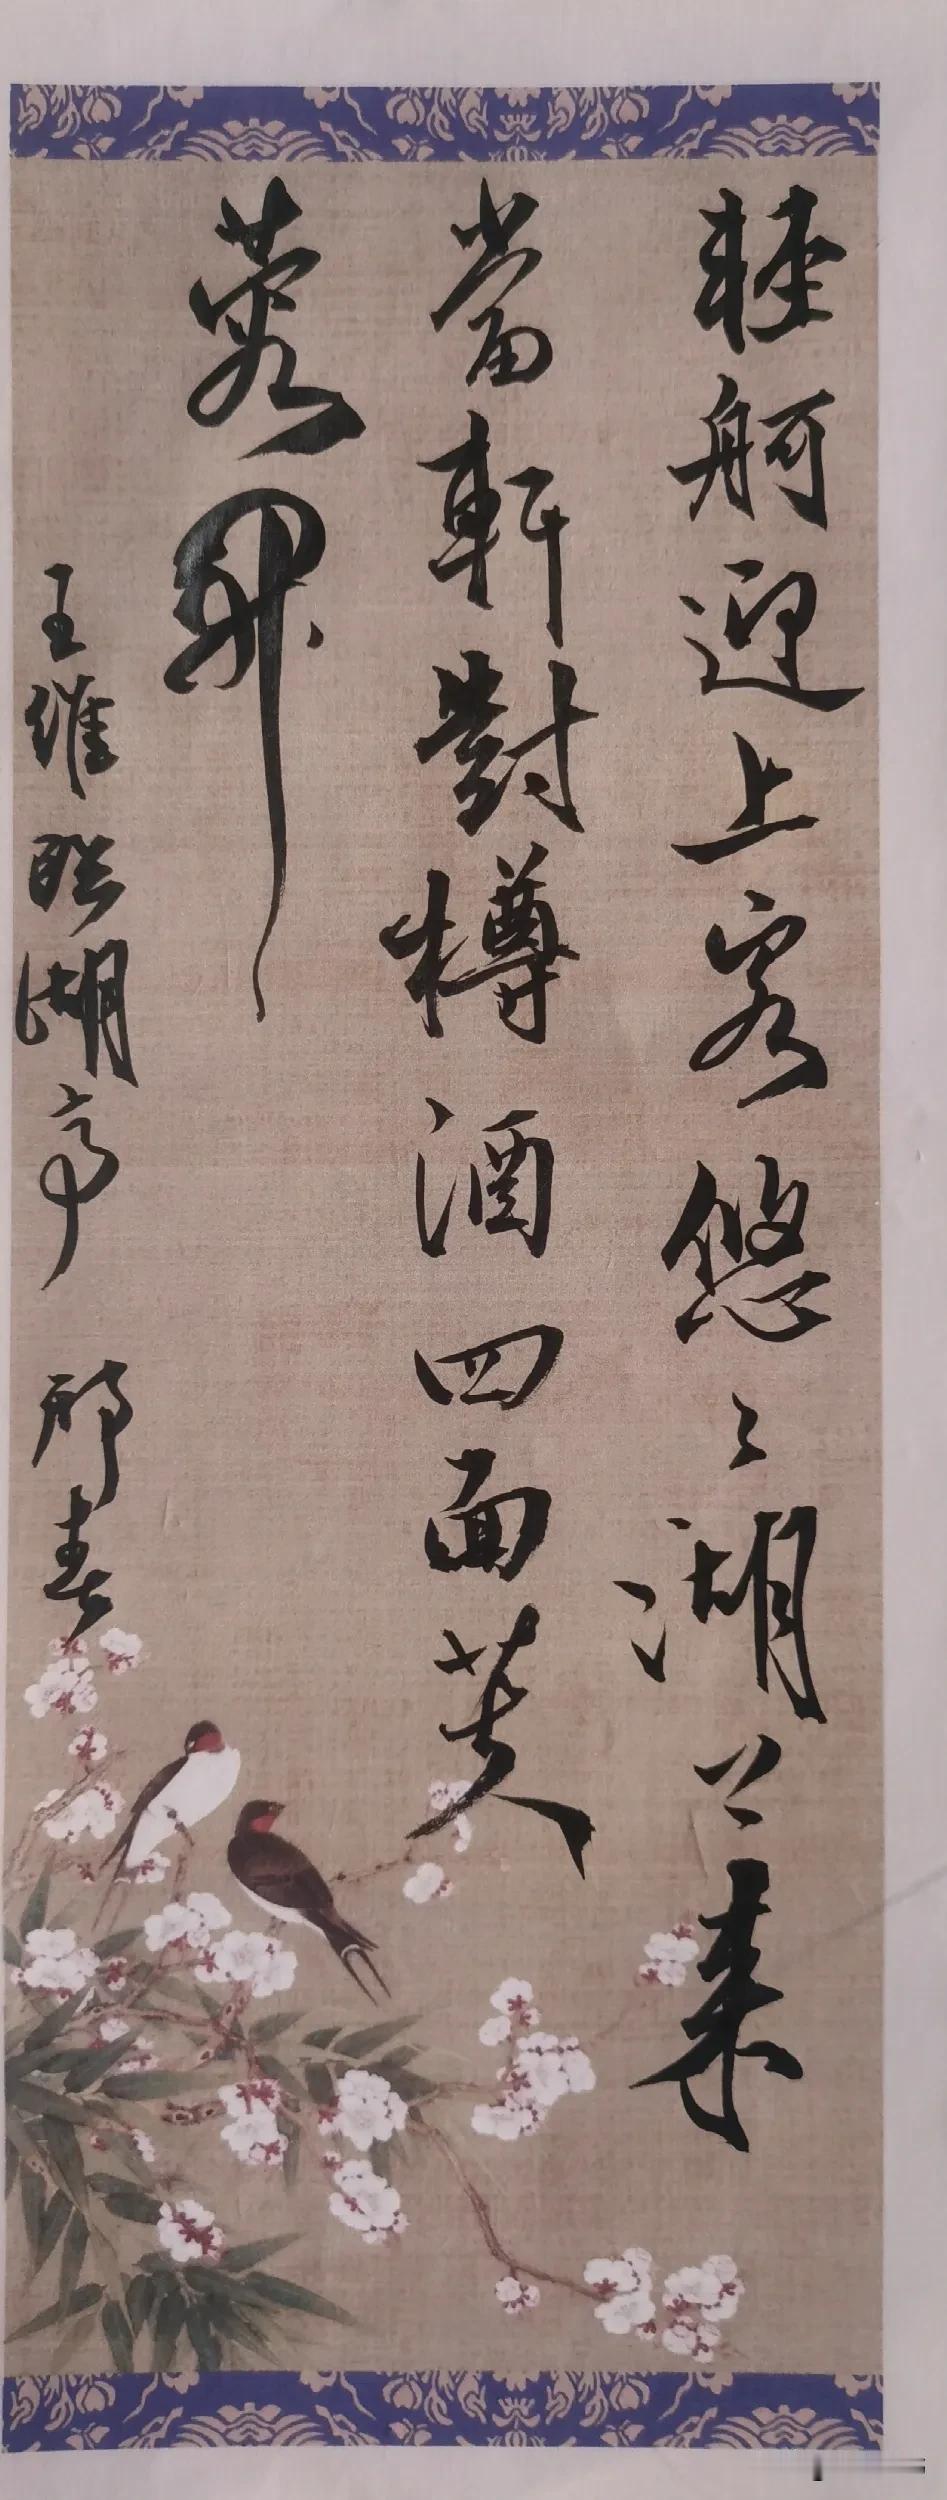 輕舸迎上客悠〻湖上来
當軒對樽酒四面芙
蓉開
王維臨湖亭 師春